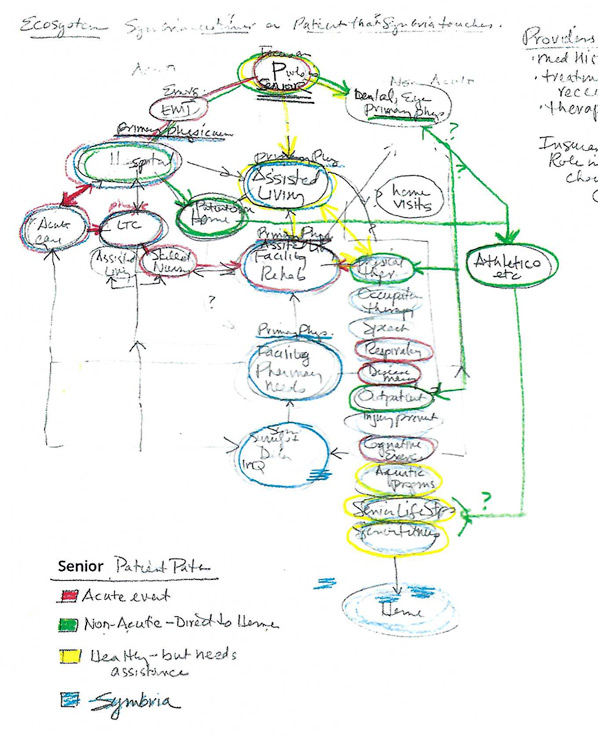 Ecosystem Symbria customer or Patient that Symbria touches.
Providers
• Med His
• treatme
rece
• therap
Insura
Role i
cho
Acute
Non-Acute
P
SENIORS
EMT
Dental, Eye
Primary Phys
?
Primary Physician
Hospital
Primary Phys.
Assisted
Living
home
visits
Home
Acute
care
LTC
Primary Phys
Facility
Rehab
Physical
Ther.
Athletico
etc
Assisted
Living
Skilled
Nurs
?
Occupation
therapy
Speech
Primary Phys.
Facility
Pharmacy
Needs
Respiratory
Disease
Outpatient
Injury Prevent
Data
INQ
Cognitive
Aquatic
Programs
Senior Life Steps
?
Senior Fitness
Home
Senior Patient Path
Acute event
Non-Acute – Direct to Home
Healthy – but needs
assistance
Symbria